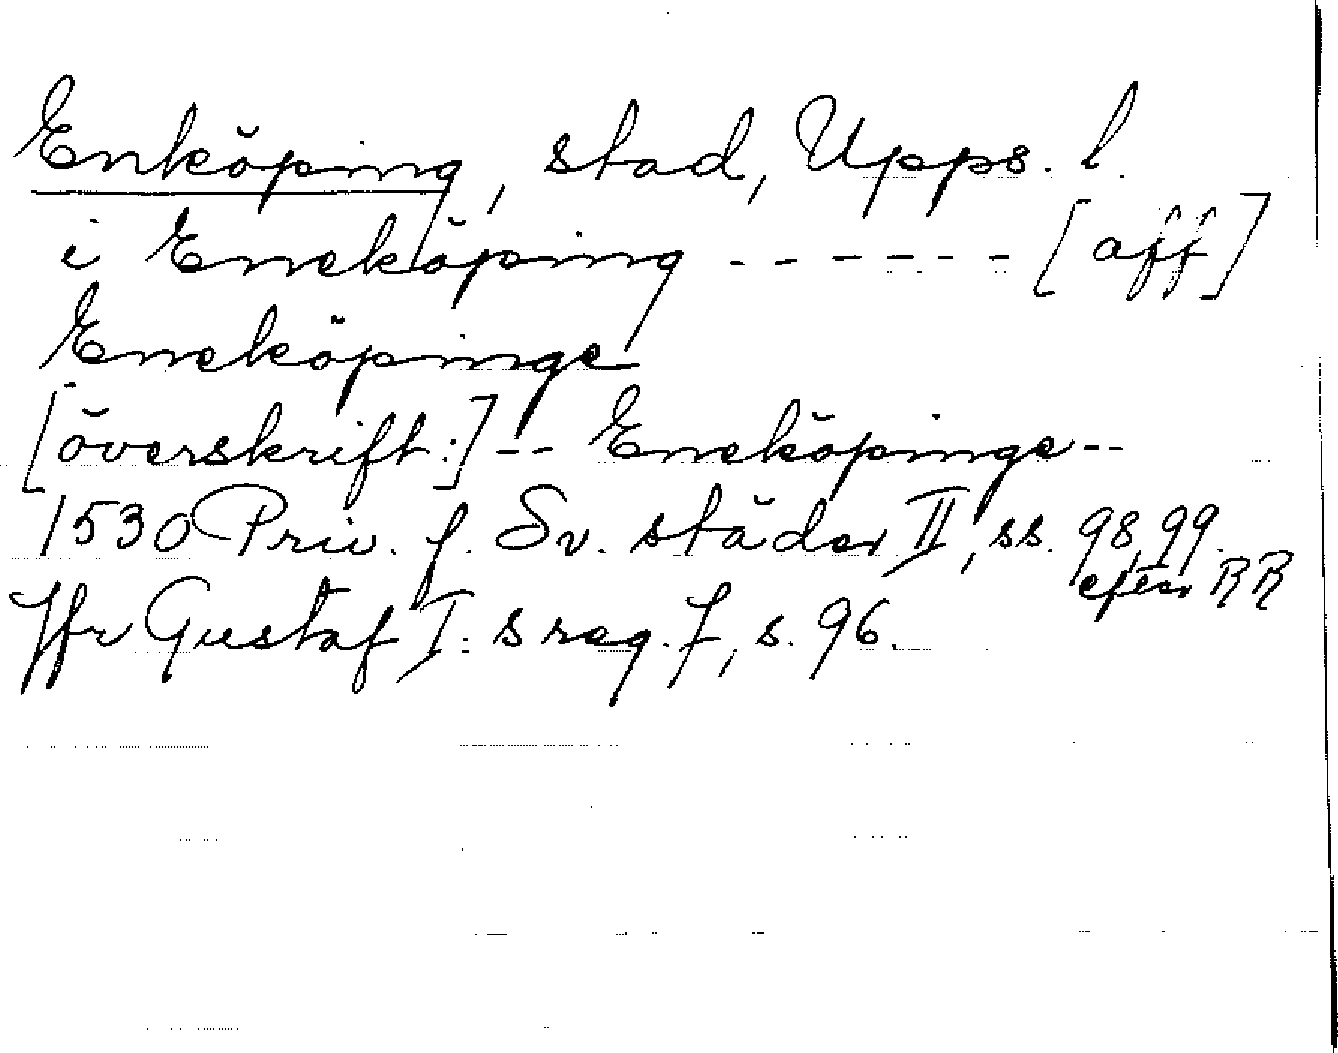 Enköping, stad, Upps. l.
i Eneköping - - - - - - [aff]
Eneköpinge
[överskrift:] -- Eneköpinge --
1530 Priv. f. Sv. städer II, ss. 98, 99.
efter RR
Jfr Gustaf I:s reg. 7, s. 96.